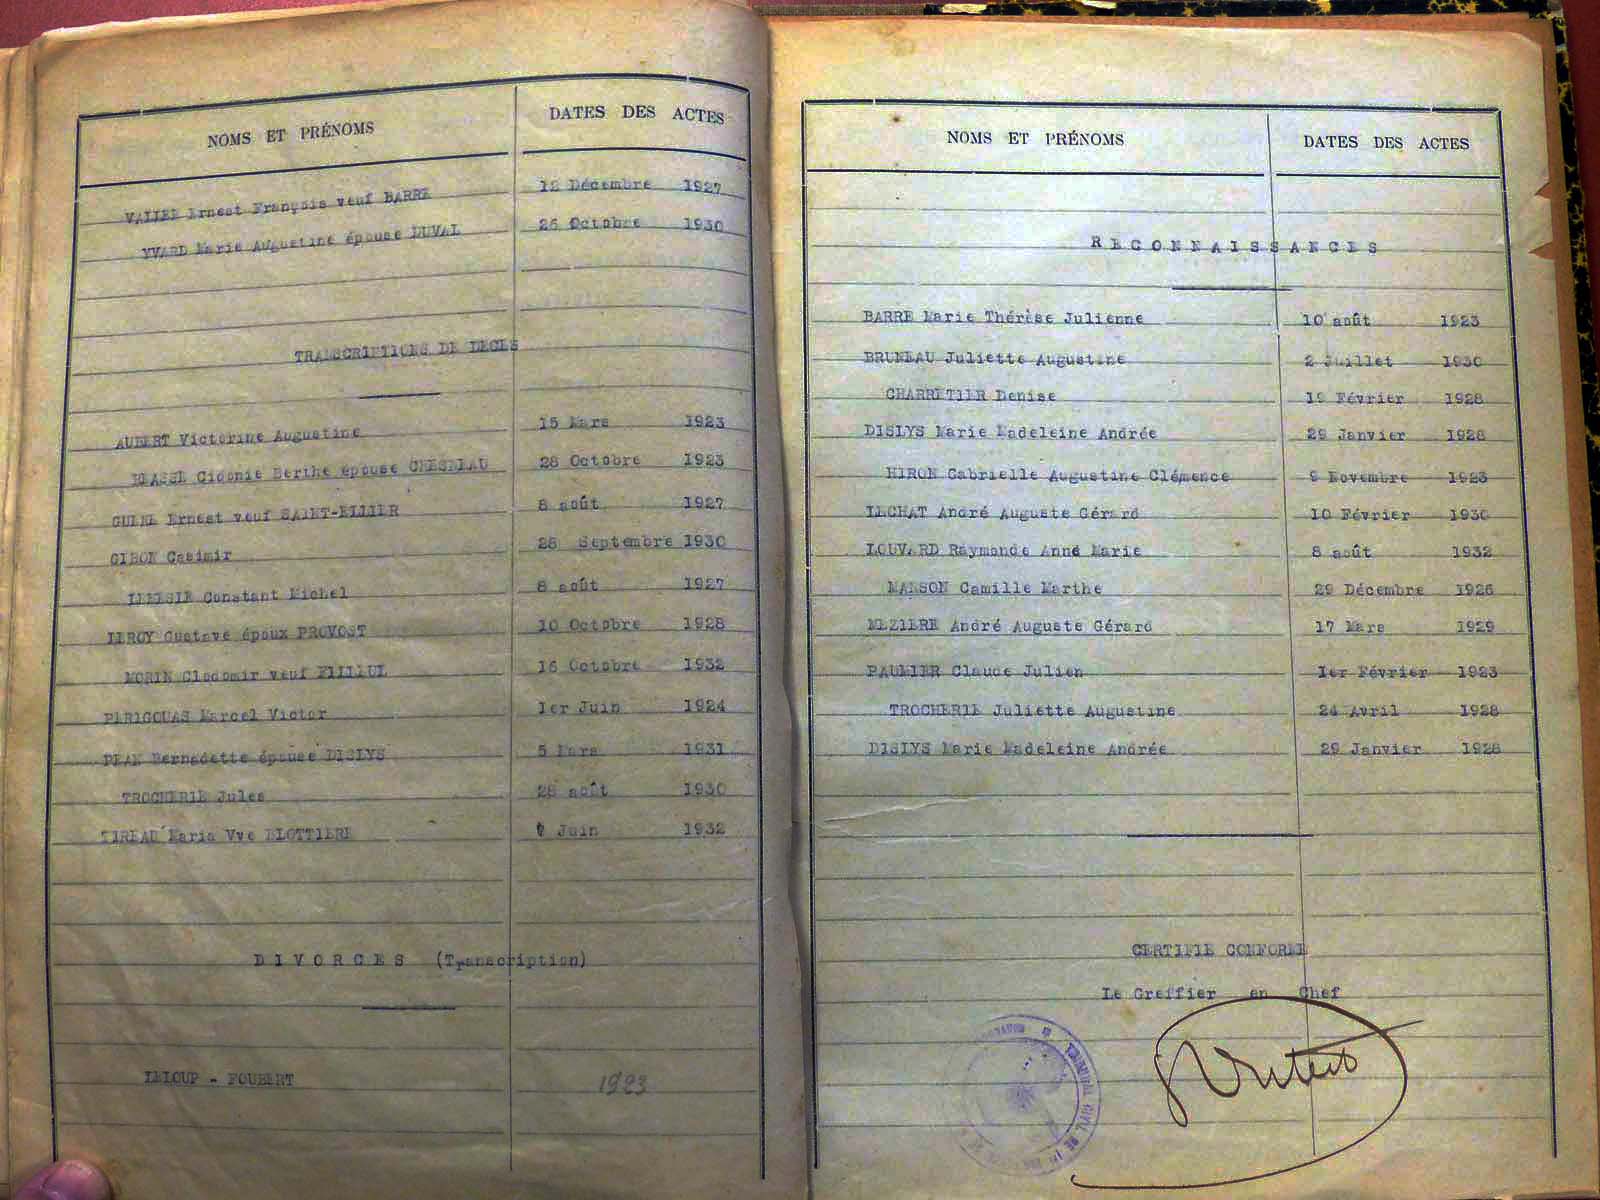 NOMS ET PRÉNOMS DATES DES ACTES
VALLEE Ernest François veuf BARRE 12 Décembre 1927
YVARD Marie Augustine épouse DUVAL 26 Octobre 1930
TRANSCRIPTIONS DE DECES
AUBERT Victorine Augustine 15 Mars 1923
Cidonie Berthe épouse 28 Octobre 1923
Ernest veuf SAINT-ELLIER 8 août 1927
GIBON Casimir 28 Septembre 1930
Constant Michel 8 août 1927
LEROY Gustave époux PROVOST 10 Octobre 1928
MORIN Clodomir veuf FILLEUL 16 Octobre 1932
PERIGOUAS Marcel Victor 1er Juin 1924
PEAN Bernadette épouse DISLYS 5 Mars 1931
TROCHERIE Jules 28 août 1930
Maria Vve BLOTTIERE Juin 1932
DIVORCES (Transcription)
LELOUP - FOUBERT 1923
NOMS ET PRÉNOMS DATES DES ACTES
RECONNAISSANCES
BARRE Marie Thérèse Julienne 10 août 1923
BRUNEAU Juliette Augustine 2 Juillet 1930
CHARRETIER Denise 19 Février 1928
DISLYS Marie Madeleine Andrée 29 Janvier 1928
HIRON Gabrielle Augustine Clémence 9 Novembre 1923
LECHAT André Auguste Gérard 10 Février 1930
LOUVARD Raymonde Anne Marie 8 août 1932
MANSON Camille Marthe 29 Décembre 1926
MEZIERE André Auguste Gérard 17 Mars 1929
PAUMIER Claude Julien 1er Février 1923
TROCHERIE Juliette Augustine 24 Avril 1928
DISLYS Marie Madeleine Andrée 29 Janvier 1928
CERTIFIE CONFORME
Le Greffier en Chef
TRIBUNAL CIVIL DE